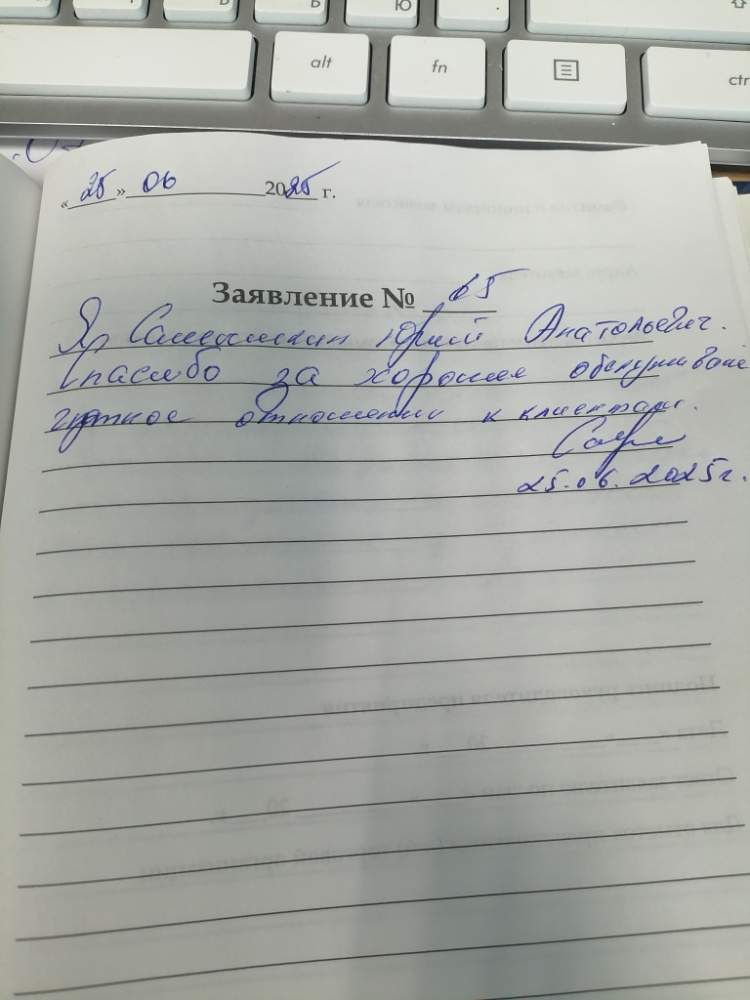 Ю
alt
fn
ctr
«25» 06 2025 г.
Заявление № 65
Я, Юрий Анатольевич.
Спасибо за хорошее обслуживание
отношение к клиентам.
25.06.2025г.